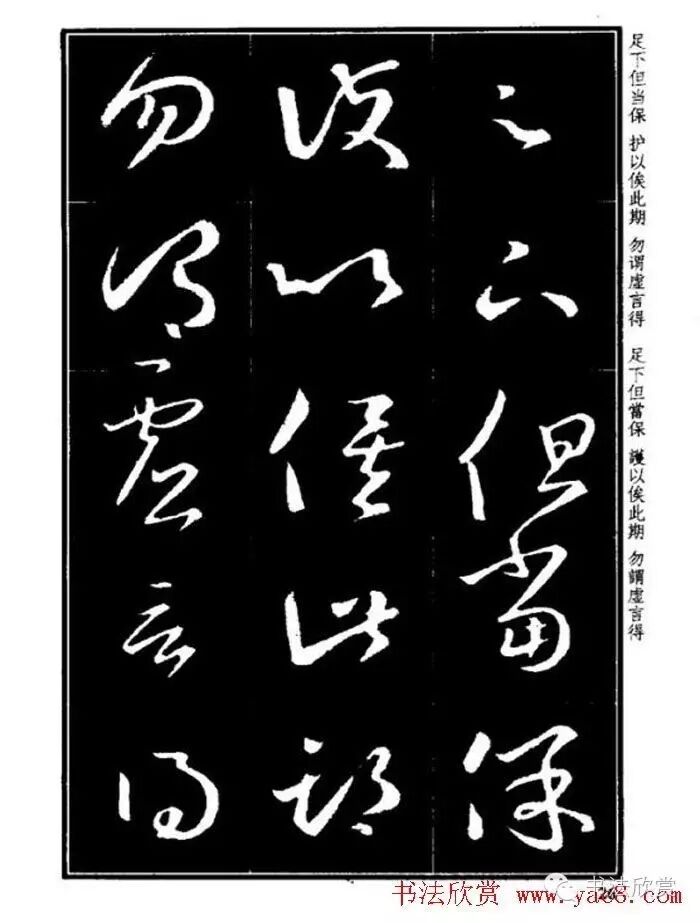 足下但當保
護以俟此期
勿謂虛言得
足下但当保 护以俟此期 勿谓虚言得
足下但當保 護以俟此期 勿謂虛言得
26
书法欣赏 www.yac8.com
书法欣赏